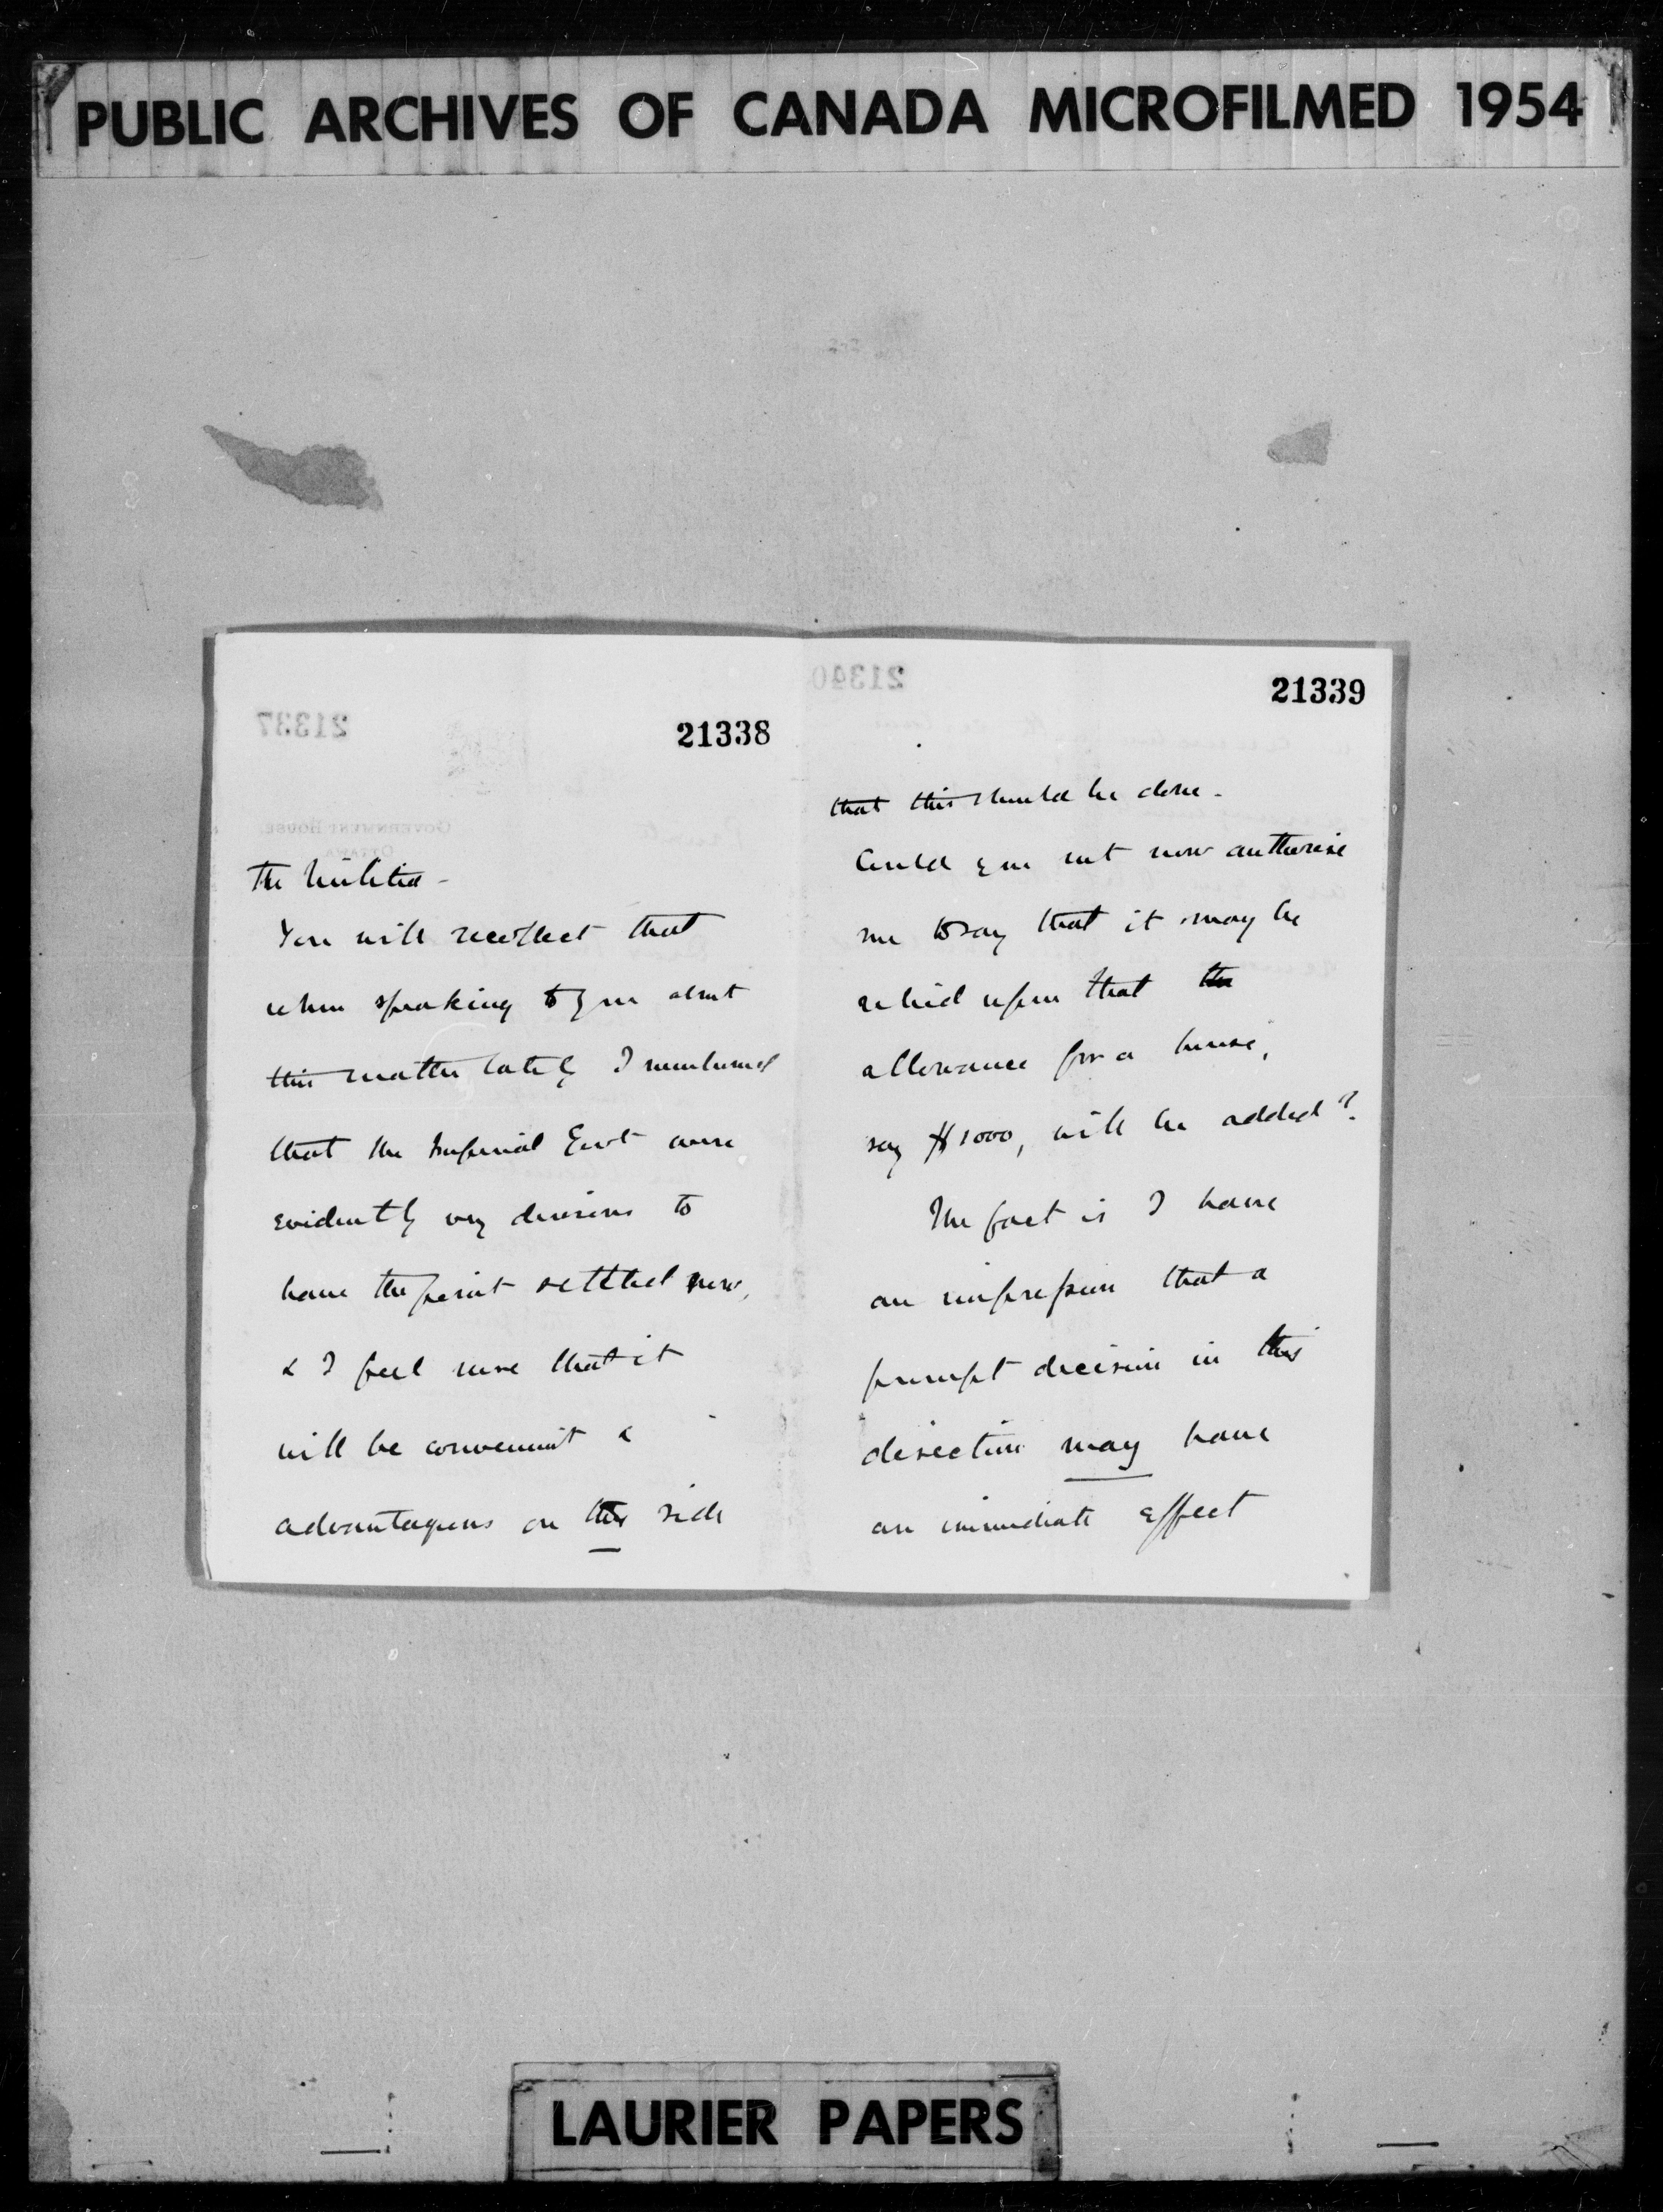 PUBLIC ARCHIVES OF CANADA MICROFILMED 1954
21338
The Militia -
You will recollect that
when speaking to you about
this matter lately I mentioned
that the Imperial Govt were
evidently very desirous to
have the point settled now,
& I feel sure that it
will be convenient &
advantageous on this side
21339
that this should be done -
Could you not now authorise
me to say that it may be
relied upon that the
allowance for a house,
say $1000, will be added?
The fact is I have
an impression that a
prompt decision in this
direction may have
an immediate effect
LAURIER PAPERS
21337
GOVERNMENT HOUSE.
OTTAWA
21340